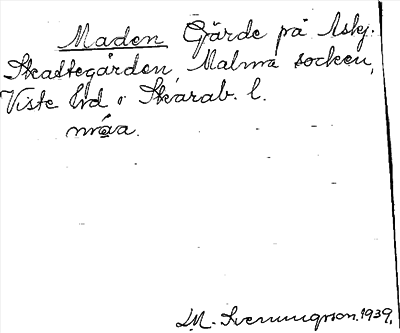 Maden Gärde på Askj.
Skattegården, Malma socken,
Viste hd i Skarab. l.
måa.
L.M. Svenungsson. 1939.